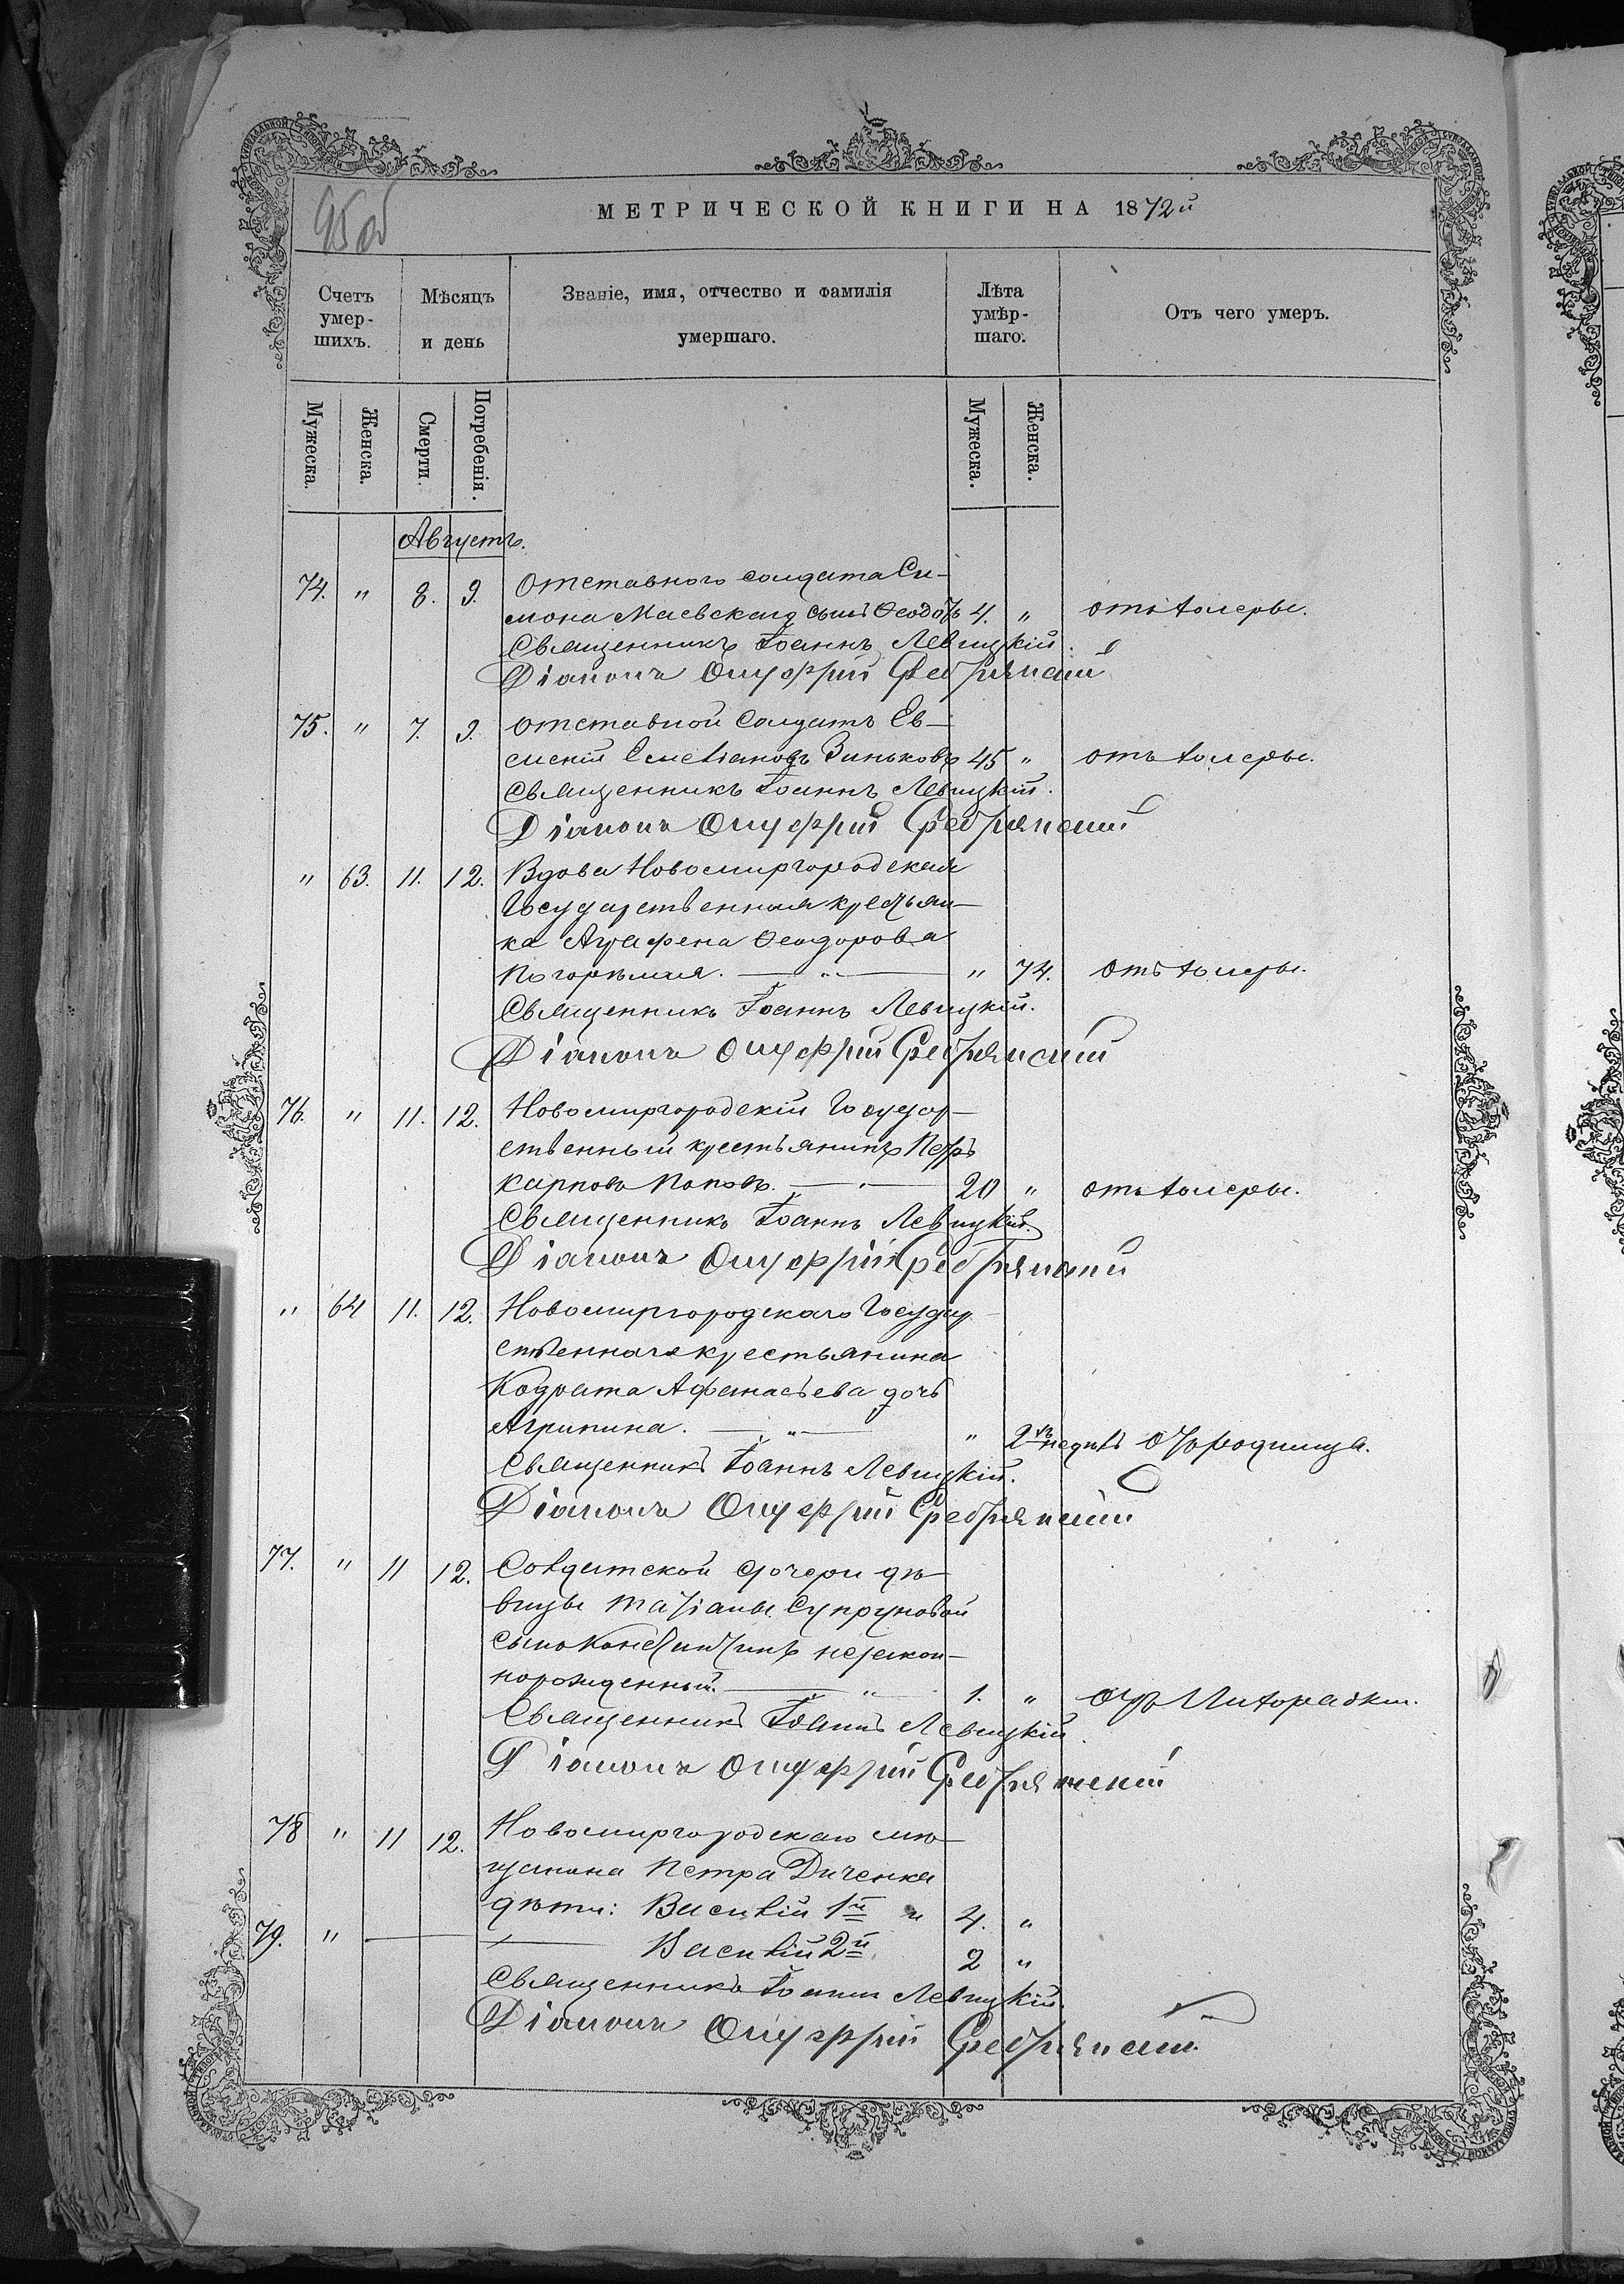 95 об
МЕТРИЧЕСКОЙ КНИГИ НА 1872й
Счетъ умер-шихъ.
Мѣсяцъ и день
Званіе, имя, отчество и фамилія умершаго.
Лѣта умѣр-шаго.
Отъ чего умеръ.
Мужеска.
Женска.
Смерти.
Погребенія.
Мужеска.
Женска.
Августъ.
74. " 8. 9. Отставного солдата Си-
мона Маевскаго сынъ Ѳеодотъ 4. " отъ холеры.
Священникъ Іоаннъ Левицкій.
Діаконъ Онуфрій
75. " 7. 9. отставной солдатъ Ев-
сменій Емельяновъ Зиньковъ 45 " отъ холеры.
Священникъ Іоаннъ Левицкій.
Діаконъ Онуфрій
" 63. 11. 12. Вдова Новомиргородская
Государственная крестьян-
ка Агафена Ѳеодорова
Погорѣлая. — " — " 74. отъ холеры.
Священникъ Іоаннъ Левицкій.
Діаконъ Онуфрій
76. " 11. 12. Новомиргородскій Государ-
ственный крестьянинъ Петръ
Карповъ Поповъ. — " — 20 " отъ холеры.
Священникъ Іоаннъ Левицкій.
Діаконъ Онуфрій
" 64 11. 12. Новомиргородскаго Государ-
ственнаго крестьянина
Кодрата Афанасьева дочь
Агрипина. — " — " 2хъ недѣль отъ родимца.
Священникъ Іоаннъ Левицкій.
Діаконъ Онуфрій
77. " 11 12. Солдатской дочери дѣ-
вицы Татіаны Супруновой
сынъ Константинъ незакон-
норожденный. — " — 1. " отъ лихорадки.
Священникъ Іоаннъ Левицкій.
Діаконъ Онуфрій
78 " 11 12. Новомиргородскаго мѣ-
щанина Петра Диченка
дѣти: Василій 1й " 4. "
79. " — — Василій 2й. 2 "
Священникъ Іоаннъ Левицкій.
Діаконъ Онуфрій